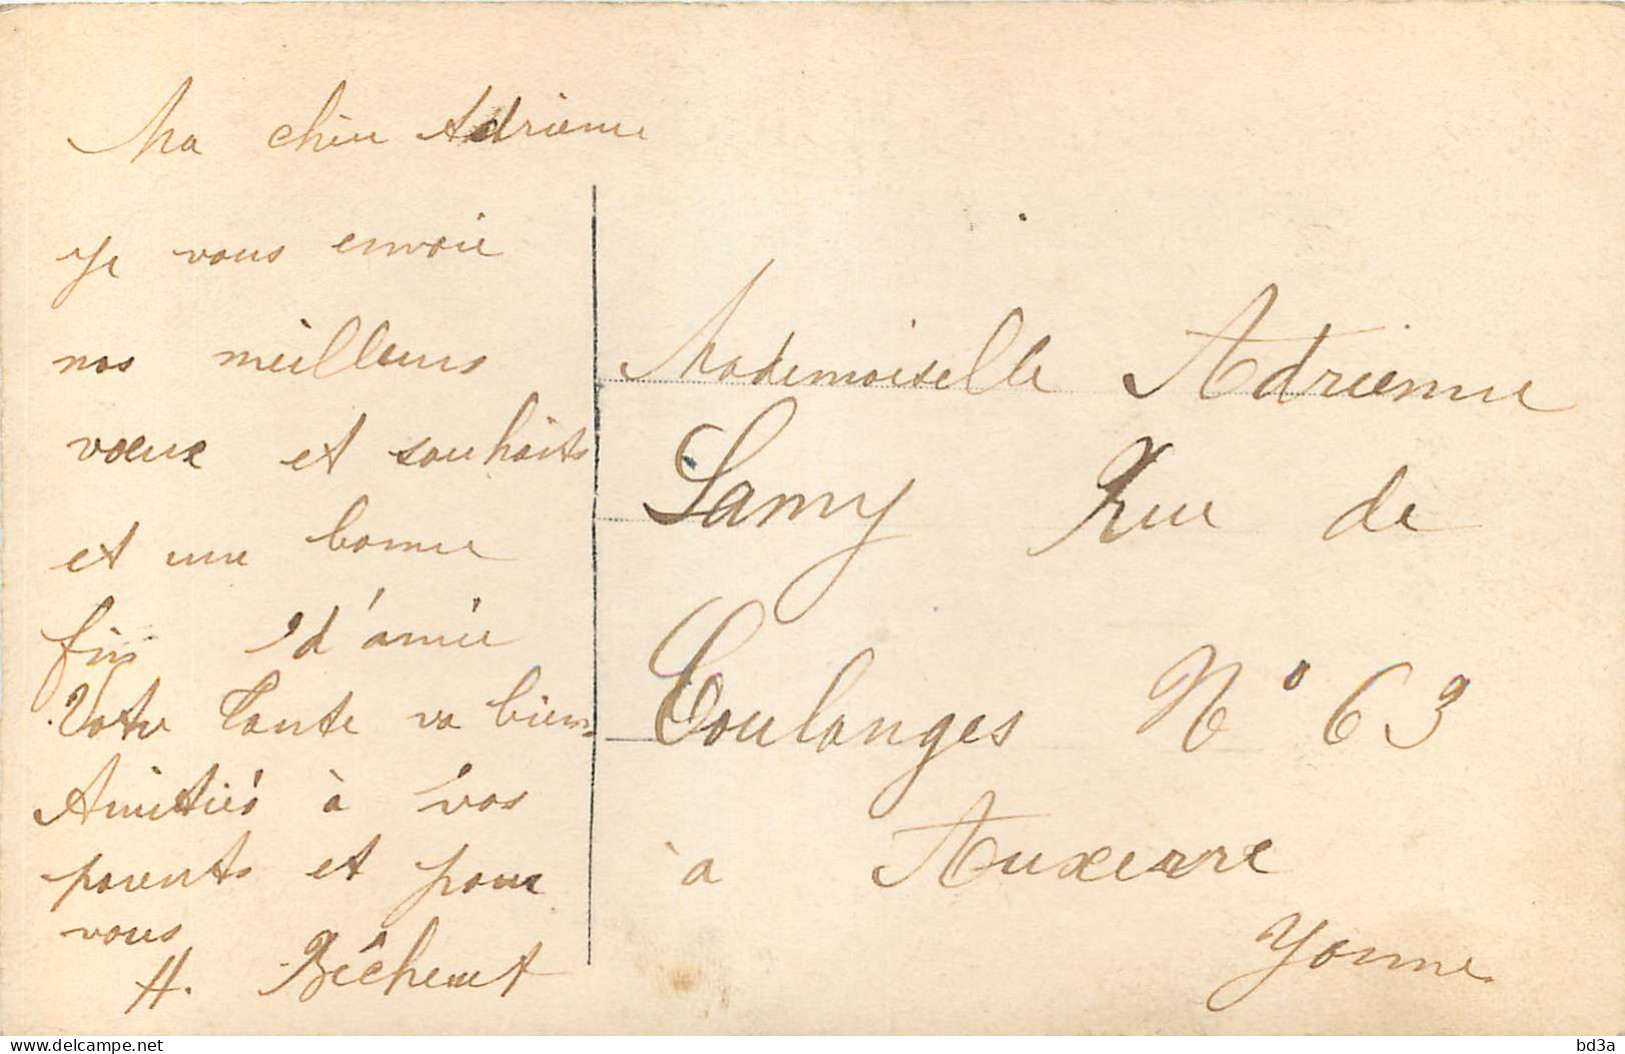 Ma chère Adrienne
Je vous envoie
nos meilleurs
voeux et souhaits
et une bonne
fin d'année
Votre Tante va bien
Amitiés à vos
parents et pour
vous
H. Bêchent
Mademoiselle Adrienne
Lamy Rue de
Coulanges N° 63
à Auxerre
Yonne
delcampe.net
bd3a